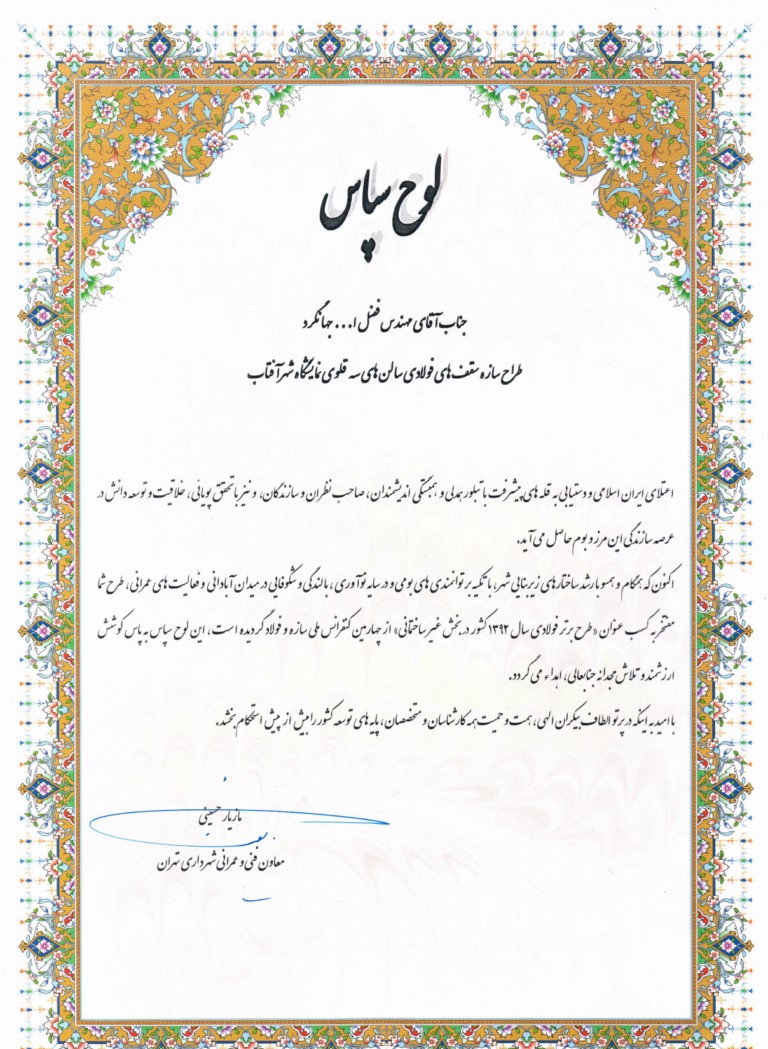 لوح سپاس
جناب آقای مهندس فضل ا... جهانگرد
طراح سازه سقف های فولادی سالن های سه قلوی نمایشگاه شهر آفتاب
اعتلای ایران اسلامی و دستیابی به قله های پیشرفت با تبلور همدلی و همبستگی اندیشمندان، صاحب نظران و سازندگان، و نیز با تحقق پویائی، خلاقیت و توسعه دانش در
عرصه سازندگی این مرز و بوم حاصل می آید.
اکنون که همگام و همسو با رشد ساختارهای زیربنایی شهر، با تکیه بر توانمندی های بومی و در سایه نوآوری، بالندگی و شکوفایی در میدان آبادانی و فعالیت های عمرانی، طرح شما
مفتخر به کسب عنوان «طرح برتر فولادی سال ۱۳۹۲ کشور در بخش غیر ساختمانی» از چهارمین کنفرانس ملی سازه و فولاد گردیده است، این لوح سپاس به پاس کوشش
ارزشمند و تلاش مجدانه جنابعالی، اهداء می گردد.
با امید به اینکه در پرتو الطاف بیکران الهی، همت و حمیت همه کارشناسان و متخصصان، پایه های توسعه کشور را بیش از پیش استحکام بخشد.
مازیار حسینی
معاون فنی و عمرانی شهرداری تهران